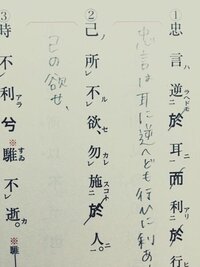 ①忠言逆ラヘドモ於耳ニ而利アリ於行ニ
忠言は耳に逆へども行ひに利あ
②己ノ所レ不ルレ欲、勿カレ施スコト於人ニ。
己の欲せ
③時不レ利アラ兮騅すゐ不レ逝カ。
※騅